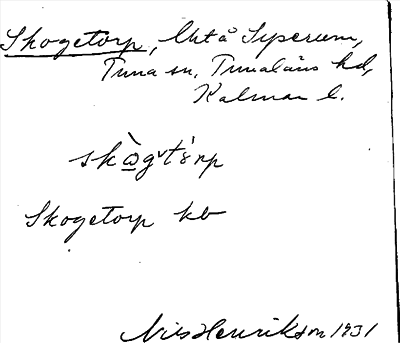 Skogetorp, Uti å Syserum,
Tuna sn, Tunaläns hd,
Kalmar l.
skògᵉtórp
Skogetorp kb
Nils Henrikson 1931